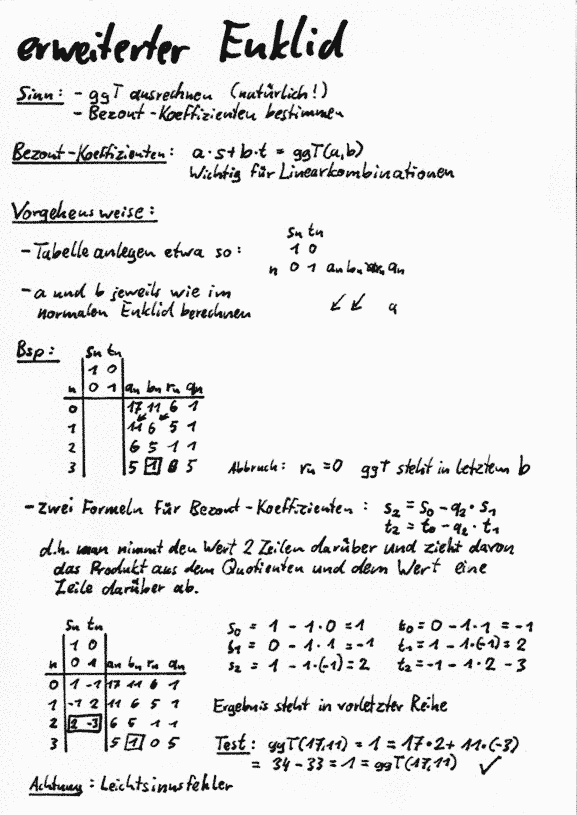 erweiterter Euklid
Sinn: - ggT ausrechnen (natürlich!)
- Bezout-Koeffizienten bestimmen
Bezout-Koeffizienten: a·s+b·t = ggT(a,b)
Wichtig für Linearkombinationen
Vorgehensweise:
sn tn
- Tabelle anlegen etwa so: 1 0
n 0 1 an bn qn
- a und b jeweils wie im
normalen Euklid berechnen ↙↙ q
Bsp: sn tn
1 0
n 0 1 an bn rn qn
0 17 11 6 1
1 11 6 5 1
2 6 5 1 1
3 5 1 0 5 Abbruch: rn=0 ggT steht in letztem b
- zwei Formeln für Bezout-Koeffizienten: s₂ = s₀ - q₂·s₁
t₂ = t₀ - q₂·t₁
d.h. man nimmt den Wert 2 Zeilen darüber und zieht davon
das Produkt aus dem Quotienten und dem Wert eine
Zeile darüber ab.
sn tn s₀ = 1 - 1·0 = 1 t₀ = 0 - 1·1 = -1
1 0 s₁ = 0 - 1·1 = -1 t₁ = 1 - 1·(-1) = 2
n 0 1 an bn rn qn s₂ = 1 - 1·(-1) = 2 t₂ = -1 - 1·2 - 3
0 1 -1 17 11 6 1
1 -1 2 11 6 5 1 Ergebnis steht in vorletzter Reihe
2 2 -3 6 5 1 1
3 5 1 0 5 Test: ggT(17,11) = 1 = 17·2 + 11·(-3)
= 34 - 33 = 1 = ggT(17,11) ✓
Achtung: Leichtsinnsfehler